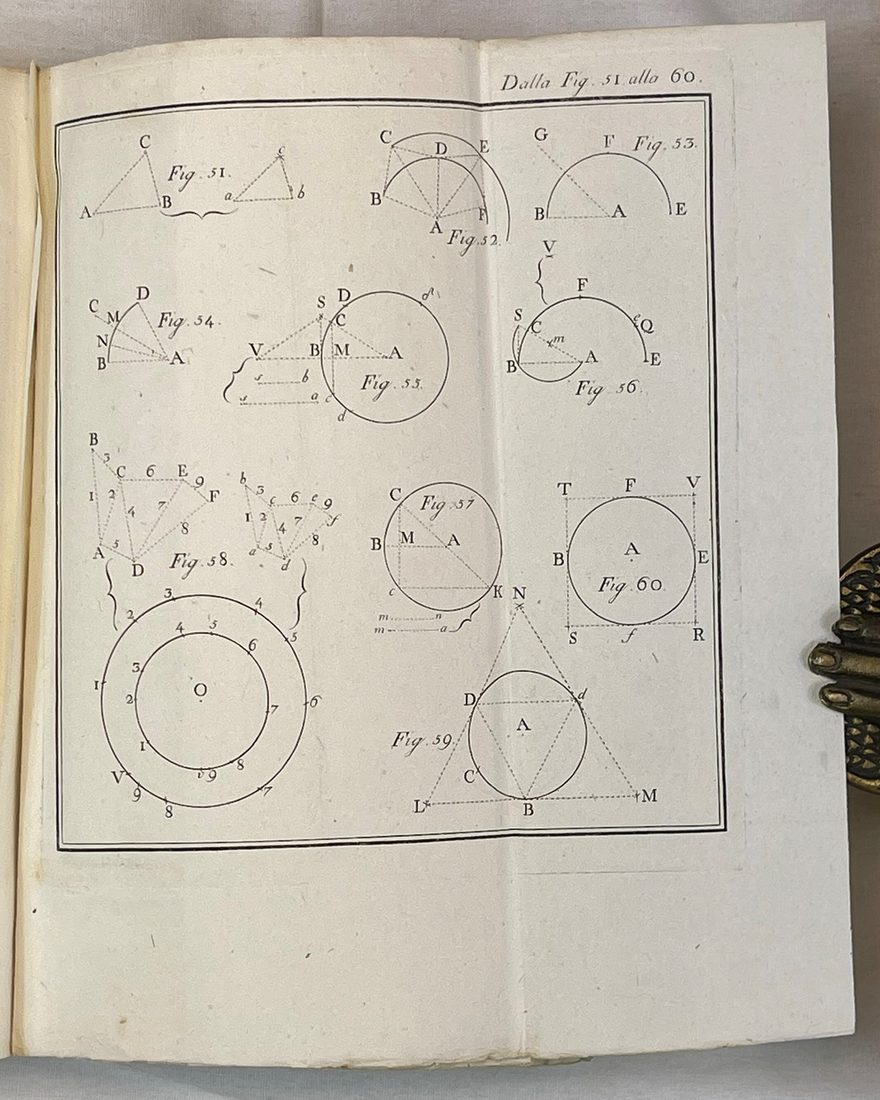 Dalla Fig. 51 alla 60.
C Fig. 51. c
A B a b
C D E
B A F
Fig. 52.
G F Fig. 53.
B A E
C D
M
N Fig. 54.
B A
S D d
C
V B M A
Fig. 55.
s b
s a c
d
V
F
S C m e Q
B A E
Fig. 56.
B
3
C 6 E 9
1 2 4 7 F
8
A 5 D
b 3 c 6 e 9
1 2 4 7 f
a 5 d 8
Fig. 58.
3 4
2 4 5 5
3 6
1 2 O 7 6
1 8
V v 9 7
9 8
C Fig. 57
B M A
c K
m n
m a
T F V
B A E
Fig. 60.
S f R
N
D d
A
Fig. 59
C
L B M